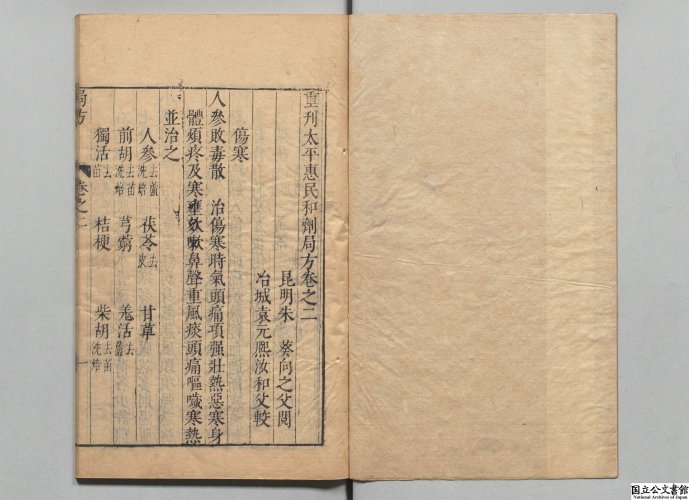 重刊太平惠民和劑局方卷之二
昆明朱 葵向之父閱
冶城袁元熙汝和父較
傷寒
人參敗毒散 治傷寒時氣頭痛項强壯熱惡寒身
體煩疼及寒壅欬嗽鼻聲重風痰頭痛嘔噦寒熱
並治之
人參去蘆洗焙 茯苓去皮 甘草
前胡去苗洗焙 芎藭 羌活去蘆
獨活去苗 桔梗 柴胡去苗洗焙
局方 卷之二 一
国立公文書館
National Archives of Japan